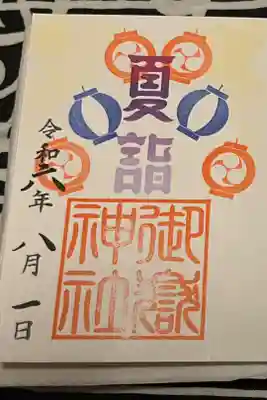 夏詣
御嶽
神社
令和六年 八月一日